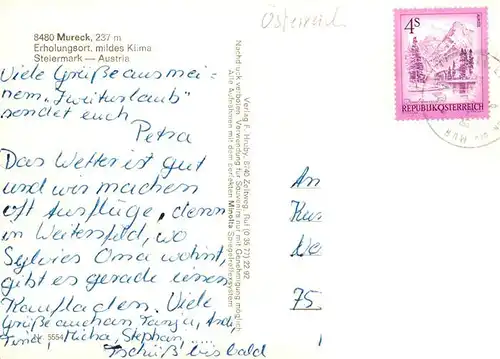 8480 Mureck, 237 m
Erholungsort, mildes Klima
Steiermark — Austria
Österreich
4S
REPUBLIK ÖSTERREICH
Viele Grüße aus mei-
nem "Zweiturlaub"
sendet euch
Petra
Das Wetter ist gut
und wir machen
oft Ausflüge, denn
in Weitersfeld, wo
Sylvies Oma wohnt,
gibt es gerade einen
Kaufladen. Viele
Grüße auch an Tanja, Andi,
Micha, Stephan.....
Tschüß bis bald
5554
Verlag F. Hruby, 8740 Zeltweg, Ruf (0 35 77) 22 92
Nachdruck verboten, Verwendung für Souvenirs nur mit Genehmigung möglich.
Alle Aufnahmen mit dem perfekten Minolta Spiegelreflexsystem
An
75